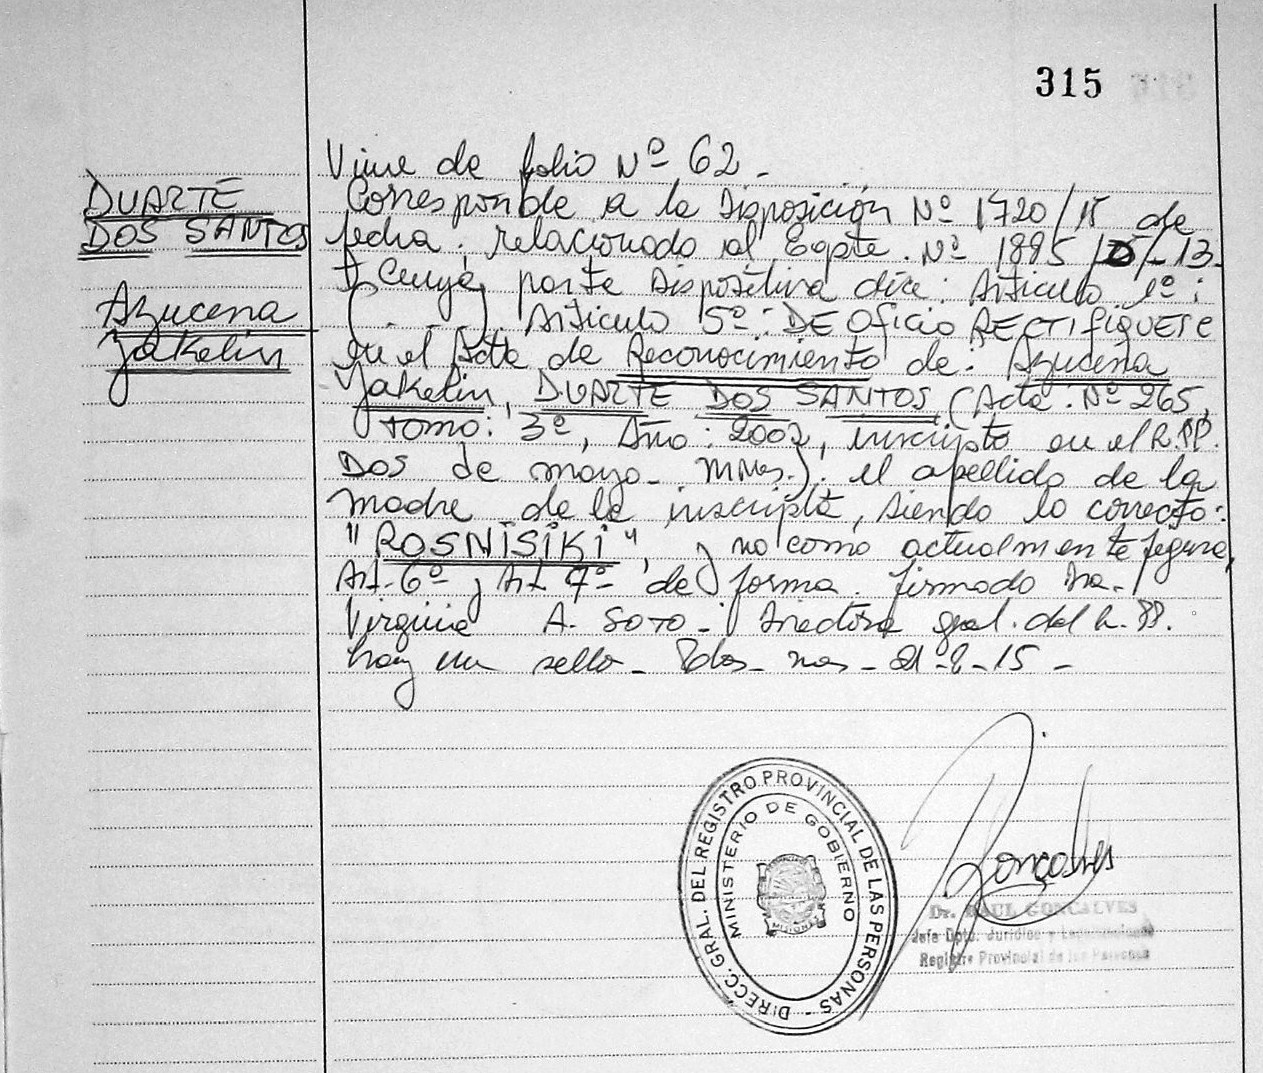 315
DUARTE
DOS SANTOS
Azucena
Jakelin
Viene de folio Nº 62-
Corresponde a la Disposición Nº 1720/15 de
fecha: relacionado al Expte. Nº 1895 /D/-13-
y cuya parte Dispositiva dice: Artículo 1º:
(...) Artículo 5º: DE OficiO RECTIFIQUESE
en el Acta de Reconocimiento de: Azucena
Jakelin, DUARTE DOS SANTOS (Acta: Nº 265,
tomo: 3º, Año: 2002, inscripta en el R.PP.
DOS de mayo- Mnes.). el apellido de la
madre de la inscripta, siendo lo correcto:
"ROSNISIKI", y no como actualmente figura,
Art. 6º y Art 7º de forma. firmado Dra.
Virginia A. SOTO - Directora gral. del R.PP.
hay un sello- Pdas- Mnes- 21-8-15-
DIRECC. GRAL. DEL REGISTRO PROVINCIAL DE LAS PERSONAS -
MINISTERIO DE GOBIERNO
MISIONES
Goncalves
Dr. RAUL GONCALVES
Jefe Dpto. Jurídico y
Registro Provincial de las Personas